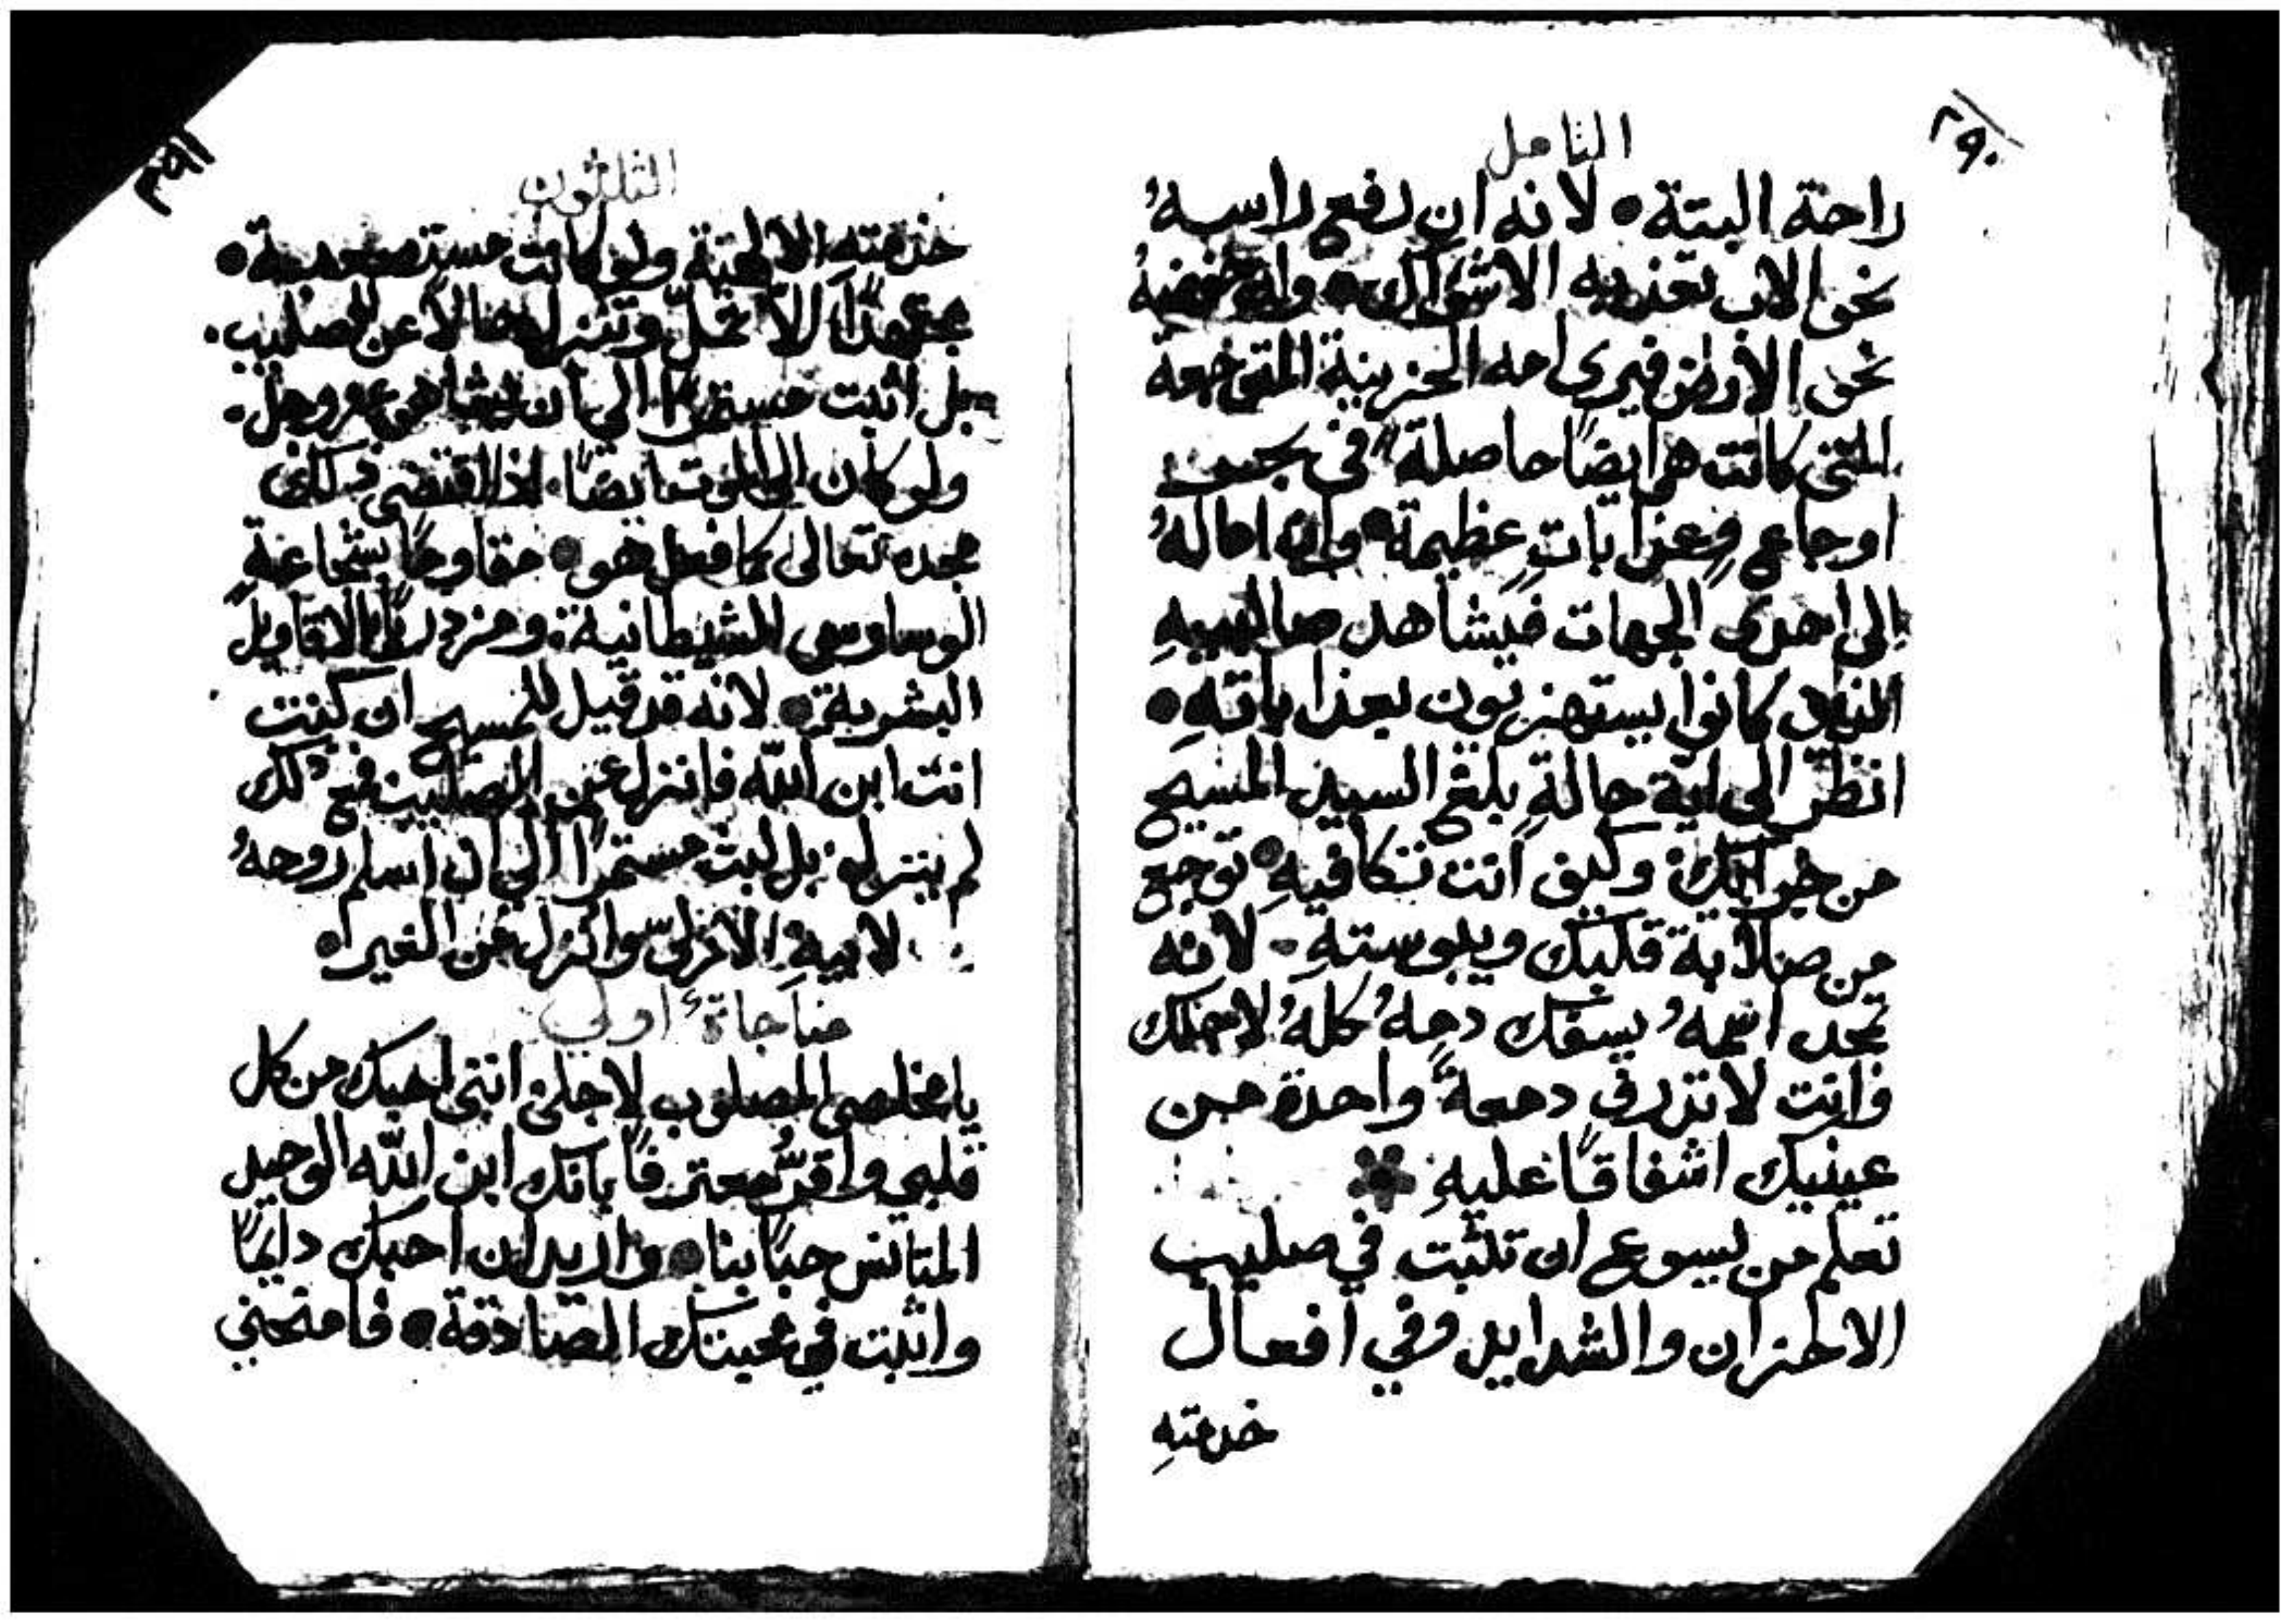 ٢٩٠
التامل
راحة البتة • لانه ان رفع راسهُ
نحو الاب تعذبه الاشواك • وان خفضهُ
نحو الأرض فيرى امه الحزينة المتوجعة
التي كانت هي ايضًا حاصلة في بحر
اوجاع وعذابات عظيمة • وان امالهُ
الى احدى الجهات فيشاهد صالبيهِ
الذين كانوا يستهزيون بعذاباتهِ •
انظر الى اية حالةٍ بلغ السيد المسيح
من وكيف انت تكافيهِ • توجع
من صلابة قلبك ويبوستهِ • لانه
تجد انهُ يسفك دمهُ كلهُ لاجلك
وانت لا تذرف دمعةً واحدة من
عينيك اشفاقًا عليهِ
تعلم من يسوع ان تثبت في صليب
الاحزان والشدايد وفي افعال
خدمتهِ
٢٩١
الثلثون
خدمتهِ الالهية ولو كانت مستصعبة •
مجتهدًا الّا تخلّ وتنزل عن الصليب •
بل اثبت الى ان يشا هو عز وجل •
ولو كان الى الموت ايضًا • اذا اقتضى ذلك
مجده تعالى كما فعل هو • مقاومًا بشجاعةٍ
الوساوس الشيطانية • ومزدريًا بالاقاويل
البشرية • لانه قد قيل للمسيح ان كنت
انت ابن الله فانزل عن الصليب فمع ذلك
لم ينزل • بل لبث مستمرًا الى ان اسلم روحهُ
لابيهِ الازلي
مناجاة اولى
يا مخلصي المصلوب لاجلي انني احبك من كل
قلبي واقرُّ معترفًا بانك ابن الله الوحيد
المتانس حبًا بنا • واريد ان احبك دايمًا
واثبت في محبتك الصادقة • فامنحني